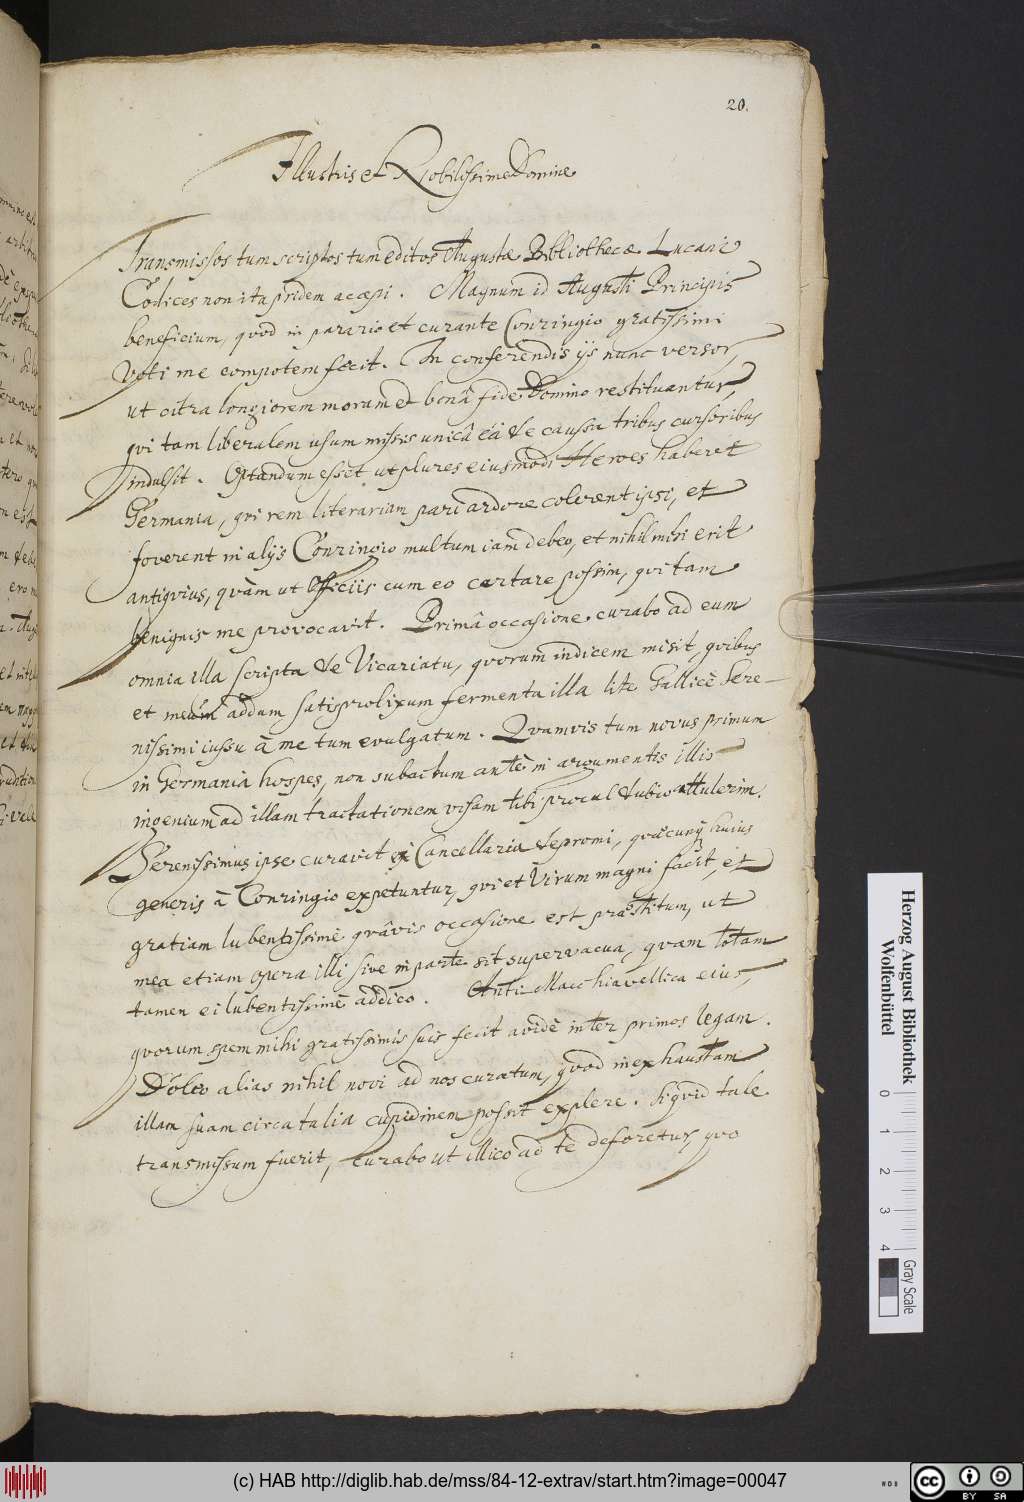 20.
Illustris et Nobilissime Domine
Transmissos tum scriptos tum editos Augustæ Bibliothecæ Lucani
Codices non ita pridem accepi. Magnum id Augusti Principis
beneficium, quod in parario et curante Conringio gratissimi
voti me compotem fecit. In conferendis ijs nunc versor,
ut citra longiorem moram et bonâ fide Domino restituantur,
qui tam liberalem usum missis unicâ eâ de caussa tribus cursoribus
indulsit. Optandum esset ut plures eiusmodi Heroes haberet
Germania, qui rem literariam pari ardore colerent ipsi, et
foverent in alijs Conringio multum iam debeo, et nihil mihi erit
antiquius, quàm ut officiis cum eo certare possim, qui tam
benignis me provocavit. Primâ occasione curabo ad eum
omnia illa scripta de Vicariatu, quorum indicem misit, quibus
et meum addam satis prolixum fermenta illa lite Gallicè Sere-
nissimi iussu à me tum evulgatum. Quamvis tum novus primum
in Germania hospes, non subactum antè in argumentis illis
ingenium ad illam tractationem visam tibi procul dubio attulerim.
Serenissimus ipse curavit ex Cancellaria depromi, quæcunq huius
generis à Conringio expetuntur, qui et Virum magni facit, et
gratiam lubentissimè quâvis occasione est præstitum, ut
mea etiam opera illi sive in parte sit supervacua, quam totam
tamen ei lubentissimè addico. Anti-Macchiavellica eius,
quorum spem mihi gratissimis suis fecit avidè inter primos legam.
Doleo alias nihil novi ad nos curatum, quod inexhaustam
illam suam circa talia cupidinem possit explere. Siquid tale
transmissum fuerit, curabo ut illico ad te deferetur, quo
Herzog August Bibliothek
Wolfenbüttel
0 1 2 3 4
Gray Scale
(c) HAB http://diglib.hab.de/mss/84-12-extrav/start.htm?image=00047
CC BY SA